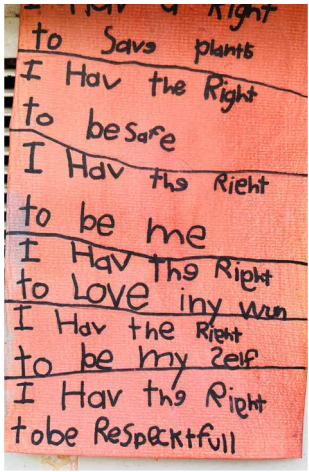 I Hav a Right
to Save plants
I Hav the Right
to besafe
I Hav the Rieht
to be me
I Hav The Right
to Love iny wun
I Hav the Rieht
to be my Self
I Hav the Right
tobe Respecktfull